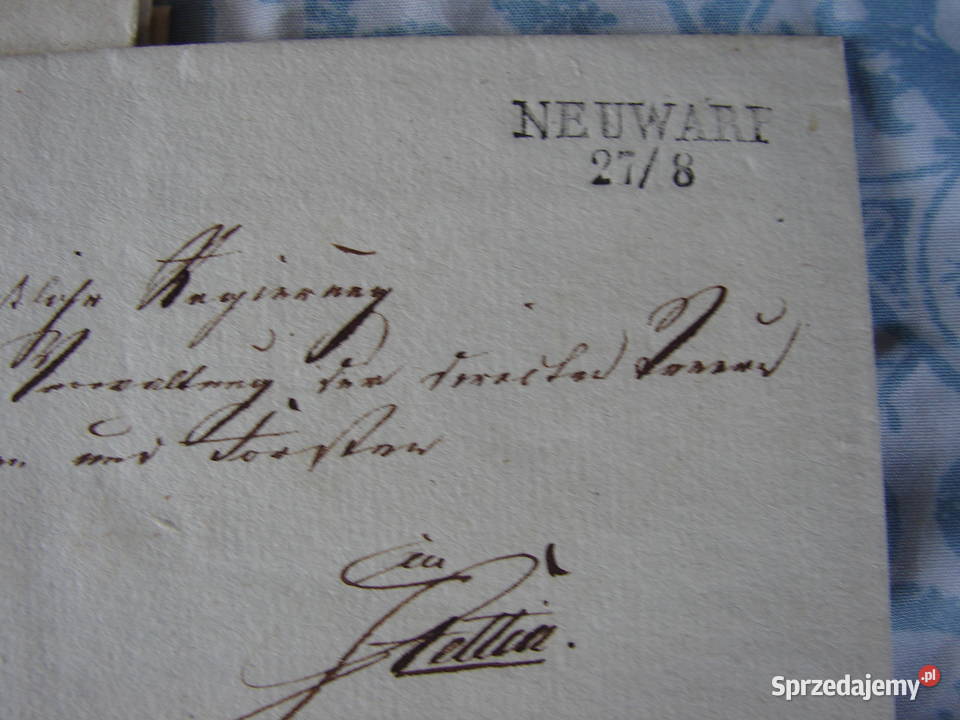 NEUWARP
27/8
Regierung
Verwaltung der directen Steuern
und Forsten
in
Stettin.
Sprzedajemy.pl